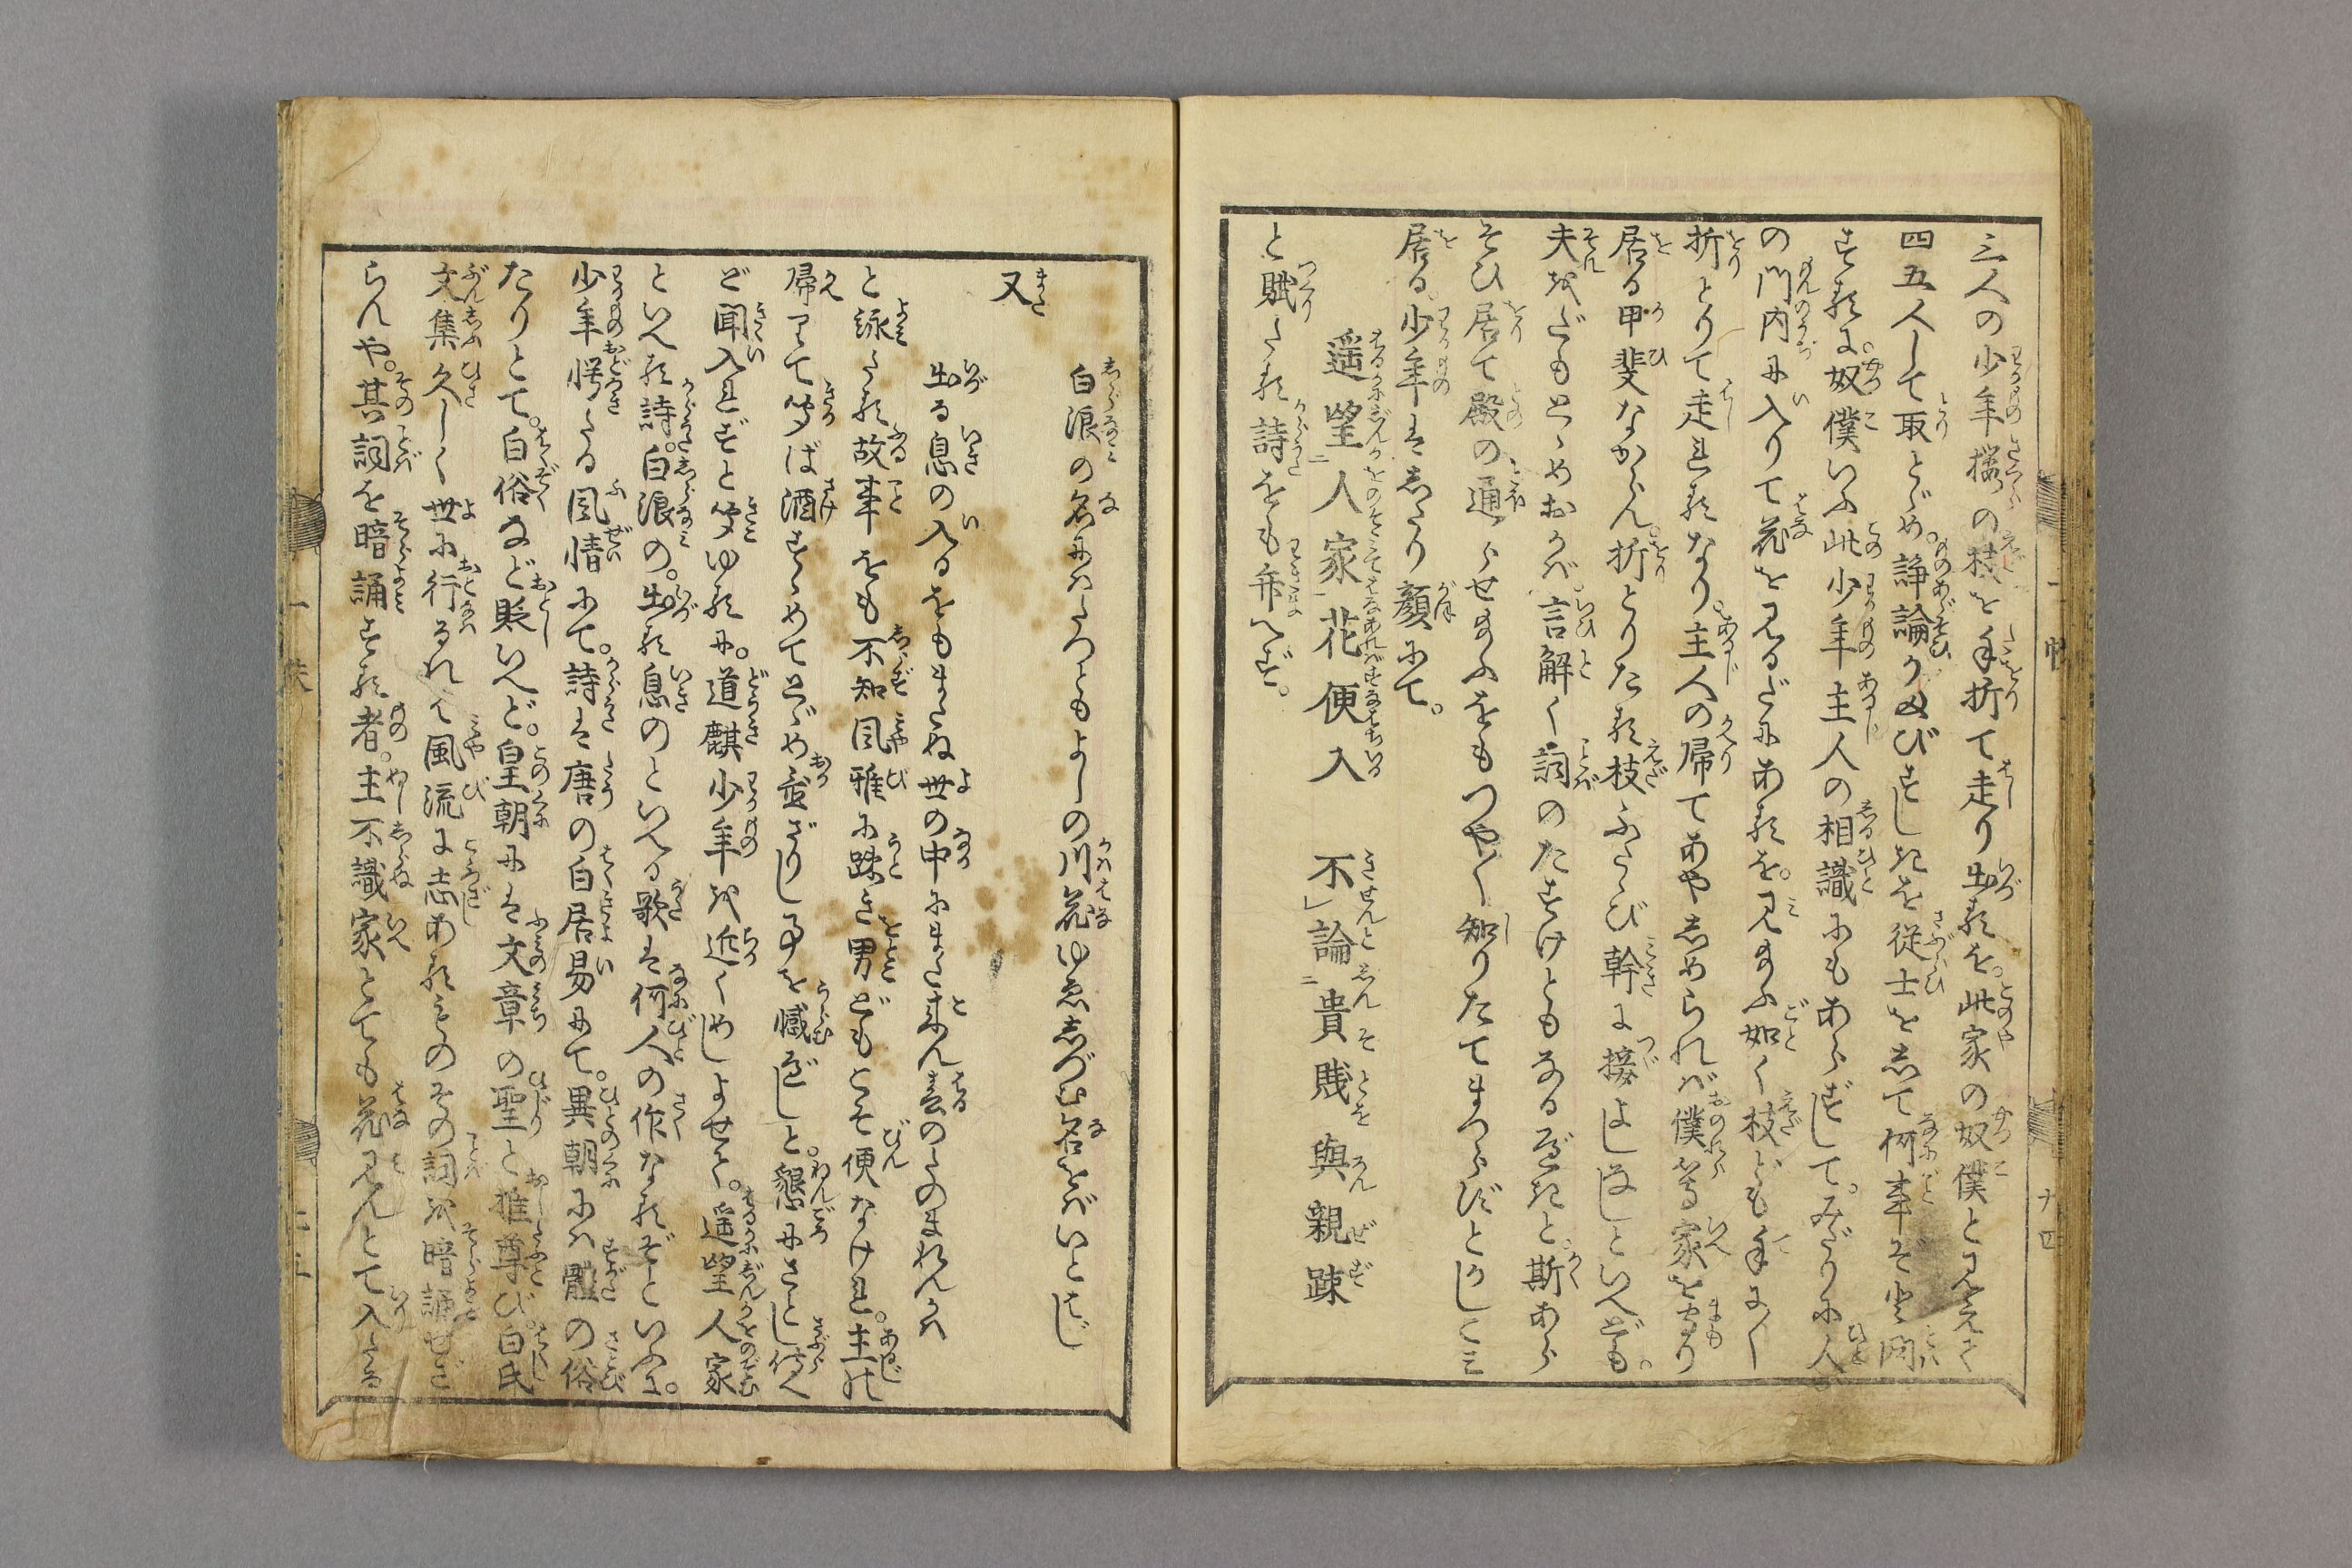 三人の少年桜の枝を手折て走り出るを。此家の奴僕と見えて
四五人して取とゞめ。諍論かまびすしきを従士をして何事ぞと問
するに。奴僕いふ此少年主人の相識にもあらずして。みだりに人
の門内に入りて花を見るだにあるを。見給ふ如く枝ども手に〳〵
折とりて走れるなり。主人の帰てあやしめられば僕等家を守り
居る甲斐なからん。折とりたる枝ふたゝび幹に接よしなしといへども。
夫をだもとゞめおかば。言解く詞のたすけともなるべきと。斯あら
そひ居て殿の通らせ給ふをもつや〳〵知りたてまつらずとかしこみ
居る。少年はしたり顔にて。
遥望人家花便入　不論貴賤與親疎
と賦たる詩をも弁へず。
白浪の名にはたつともよしの川花ゆゑしづむ名をばいとはじ
又
出る息の入るをもまたぬ世の中にまた来ん春のたのまれんかは
と詠たる故事をも不知風雅に疎き男どもこそ便なけれ。主の
帰りて聞ば酒すゝめてとゞめ置ざりし事を憾べしと。懇にさとし侍へ
ど聞入れずと聞ゆるに。道麒少年を近くめしよせて。遥望人家
といへる詩。白浪の。出る息のといへる歌は何人の作なるぞといふに。
少年愕たる風情にて。詩は唐の白居易にて。異朝には體の俗
たりとて。白俗など貶いへど。皇朝には文章の聖と推尊び。白氏
文集久しく世に行るれば風流に志あるもの其の詞を暗誦せざ
らんや。其詞を暗誦する者。主不識家とても花見んとて入たる